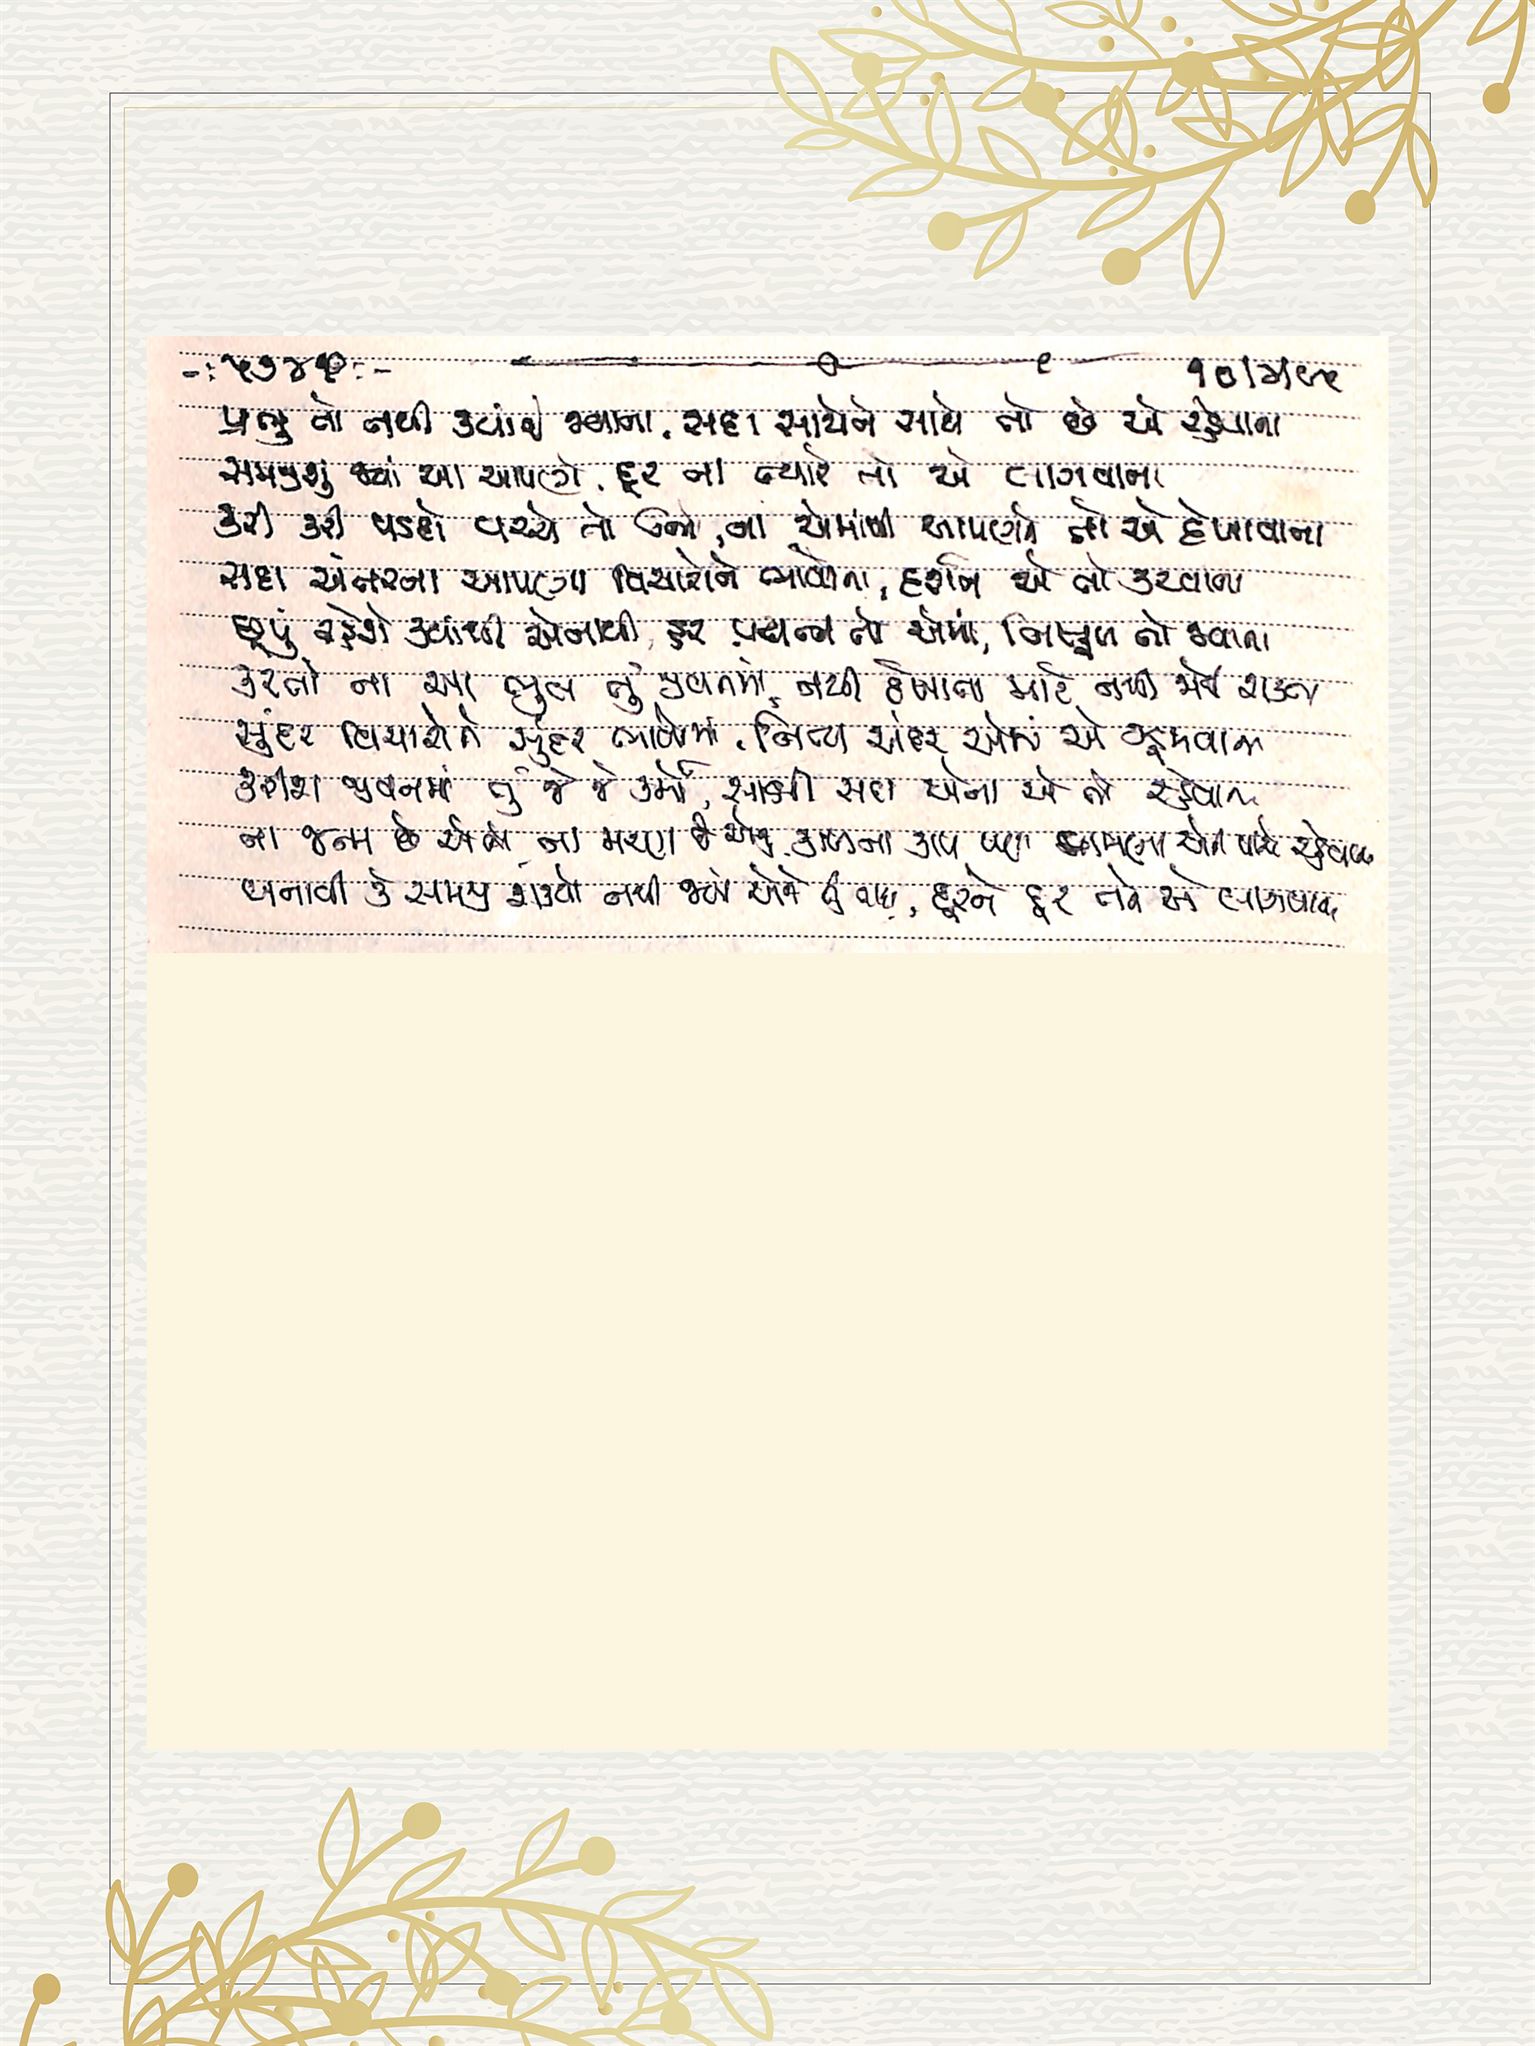 -: ૫૭૪૧ :-
પ્રભુ તો નથી ક્યાંયે જવાના, સદા સાથેને સાથે તો છે એ રહેવાના
સમજીશું જ્યાં આ આપણે, દૂર ના ત્યારે તો એ લાગવાના
કરી કરી પડદો વચ્ચે તો ઊભો, ના એમાંથી આપણને તો એ દેખાવાના
સદા અંતરના આપણા વિચારોને ભાવોના, દર્શન એ તો કરવાના
છૂપું રહેશે ક્યાંથી એનાથી, હર પ્રયત્ન તો એમાં, નિષ્ફળ તો જવાના
કરતો ના આ ભૂલ તું જીવનમાં, નથી દેખાતા માટે નથી
સુંદર વિચારોને સુંદર ભાવોમાં, નિત્ય અંદર એમાં એ ઝૂમવાના
કરીશ જીવનમાં તું જે જે કર્મો, સાક્ષી સદા એના એ તો રહેવાના
ના જન્મ છે એને, ના મરણ છે એનું, કાળના કાળ પણ એની પાસે
બનાવી કે સમજી શક્યો નથી જ્યાં એને તું, દૂરને દૂર તને એ લાગવાના